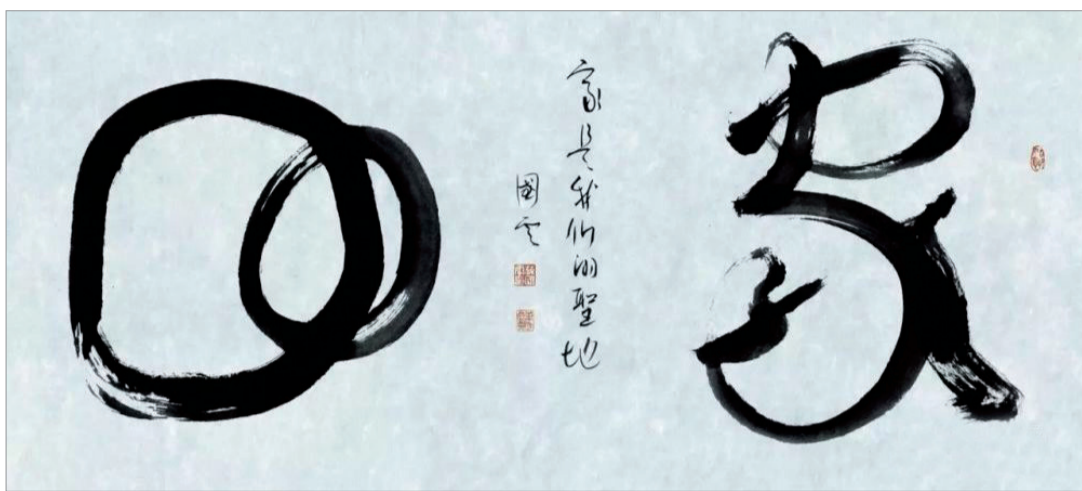 家
家是我们的聖地
國云
回